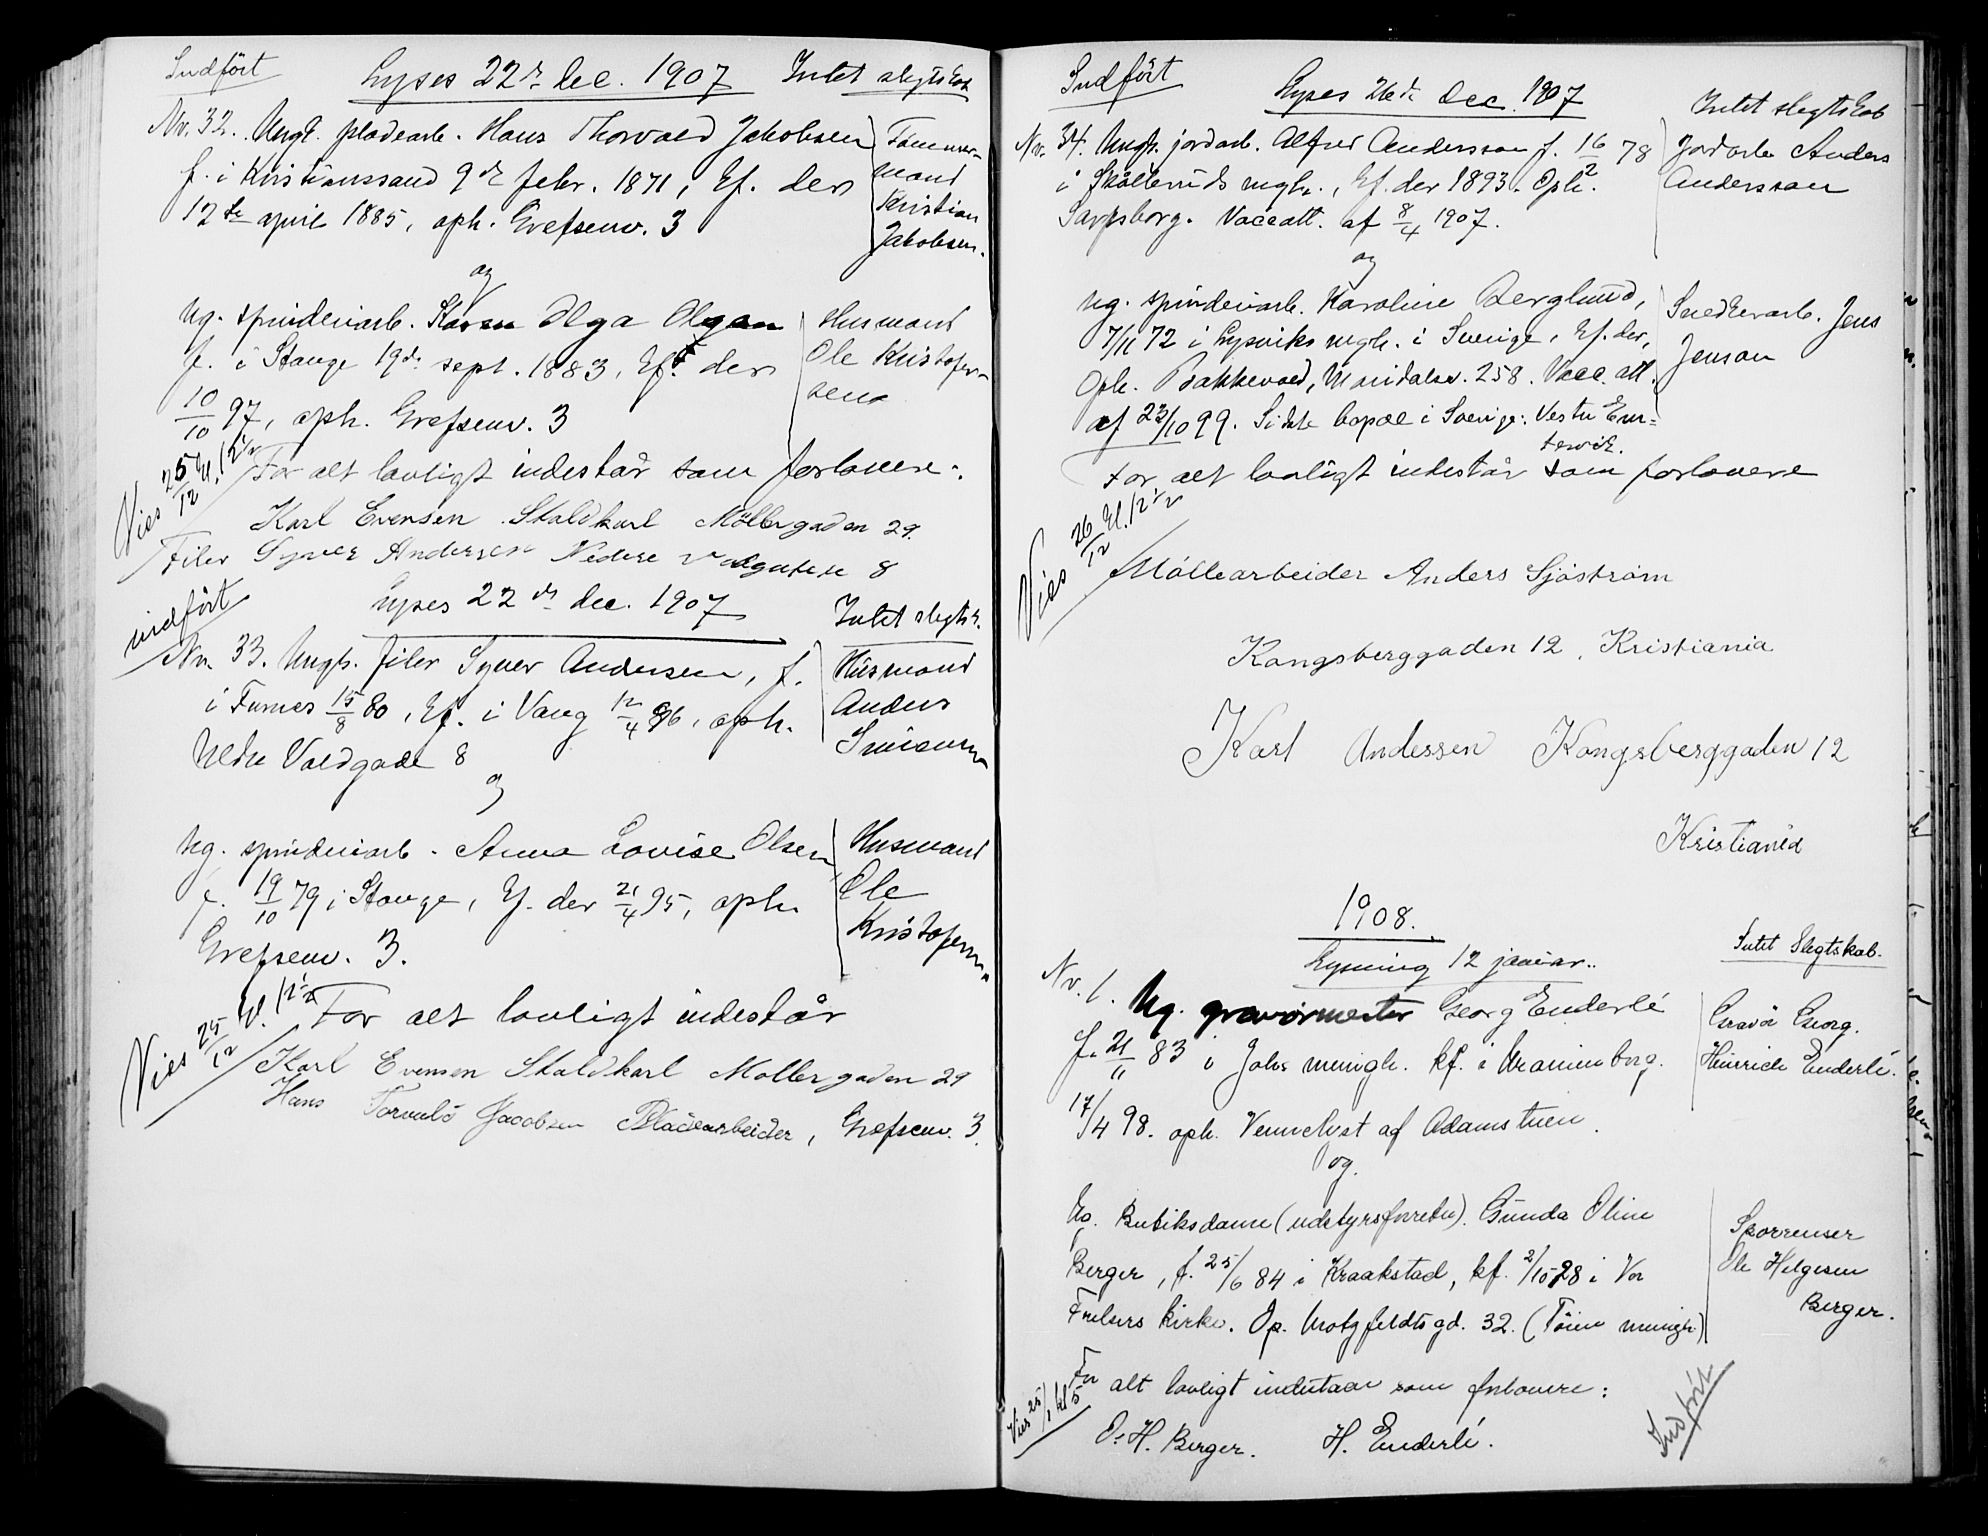 Indført
Lyses 22de dec. 1907 Intet slegtskab
Nr. 32. Ungk. pladearb. Hans Thorvald Jakobsen
f. i Kristianssand 9de febr. 1871, kf. der
12te april 1885, oph. Grefsenv. 3
Tømmer-
mand
Kristian
Jakobsen.
og
Ug. spinderiarb. Karen Olga Olsen
f. i Stange 19de sept. 1883, kf. der
10/10 97, oph. Grefsenv. 3
Husmand
Ole Kristofer-
sen
Vies 25/12 kl. 12 1/2
For alt lovligt indestår som forlovere:
Karl Evensen Staldkarl Möllergaden 29.
Filer Syver Andersen Nedre Voldgaten 8
indført
Lyses 22de dec. 1907
Intet slegtsk.
Nr. 33. Ungk. filer Syver Andersen, f.
i Furnes 15/8 80, kf. i Vang 12/4 96, oph.
Nedre Voldgade 8
Husmand
Anders
Simensen
og
Ug. spinderiarb. Anna Lovise Olsen
f. 19/10 79 i Stange, kf. der 21/4 95, oph.
Grefsenv. 3.
Husmand
Ole
Kristofersen
Vies 25/12 kl. 12 1/2
For alt lovligt indestår
Karl Evensen Staldkarl Møllergaden 29
Hans Torvald Jacobsen Pladearbeider, Grefsenv. 3.
Indført
Lyses 26de dec. 1907
Intet slegtskab
Nr. 34. Ungk. jordarb. Alfred Andersson f. 16/2 78
i Skålleruds mgh., kf. der 1893. Oph.
Sarpsborg. Vaccatt. af 8/4 1907.
Jordarb. Anders
Andersson
og
Ug. spinderiarb. Karoline Berglund,
7/11 72 i Lysviks mgh. i Sverige, kf. der,
Oph. Bakkevold, Maridalsv. 258. Vacc. att.
af 23/10 99. Sidste bopæl i Sverige: Vestre Em-
tervik.
Snedkerarb. Jens
Jenson
For alt lovligt indestår som forlovere
Vies 26/12 kl. 12 1/2
Møllearbeider Anders Sjöström
Kongsberggaden 12, Kristiania
Karl Andessen Kongsberggaden 12
Kristiania
1908.
Lysning 12 januar.
Intet Slegtskab.
Nr. 1. Ug. gravørmester Georg Enderlé
f. 21/11 83 i Johs menigh. kf. i Uranienborg.
17/4 98. oph. Vennelyst af Adamstuen.
Gravör Georg.
Heinrich Enderlé.
og.
Ug. Butiksdame (udstyrsforretn). Gunda Oline
Berger, f. 25/6 84 i Kraakstad, kf. 2/10 98 i Vor
Frelsers kirke. Op. Motzfeldtsgd. 32. (Töien menigh)
Skorrenser
Ole Helgesen
Berger.
For alt lovligt indestaar som forlovere:
Vies 25/1 kl 5
O. H. Berger. H. Enderlé.
Indført